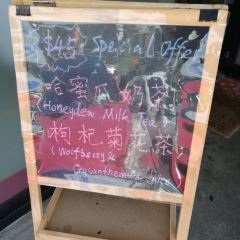 $4.5 Special Offer
哈蜜瓜奶茶
(Honeydew Milk Tea)
枸杞菊花茶
(Wolfberry &
Crysanthemum